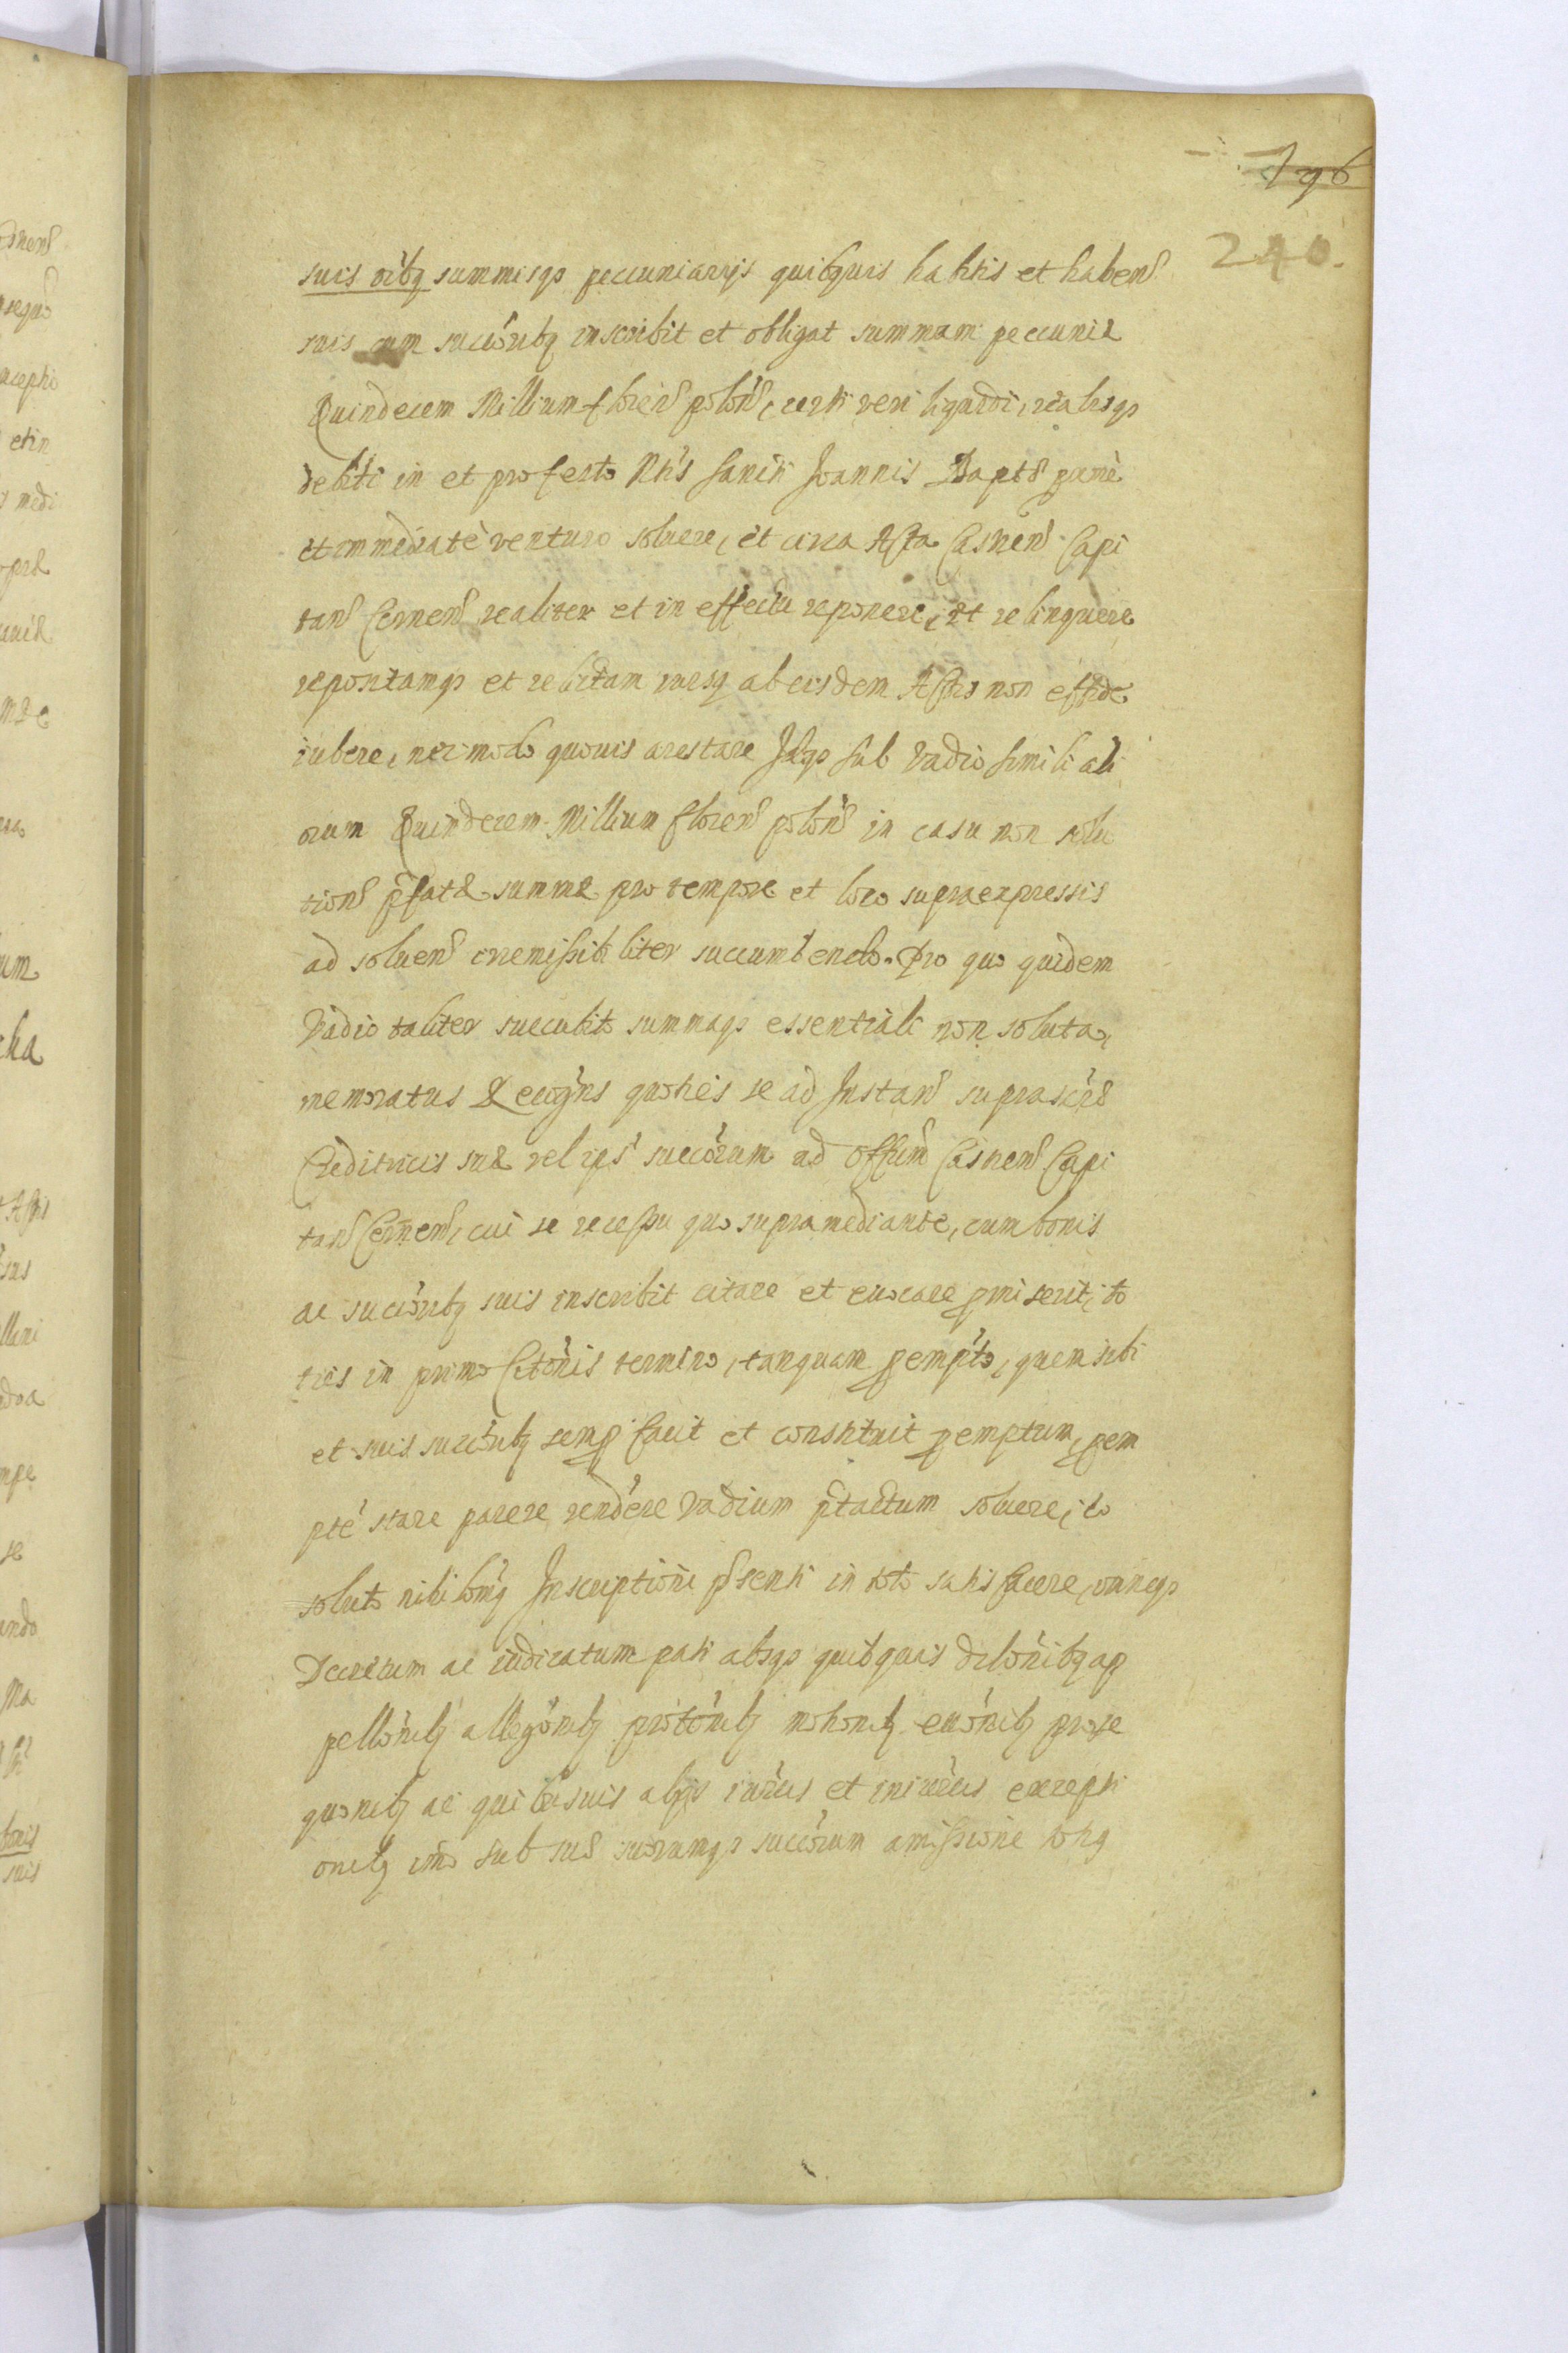 796
240.
suis oibq summisqz pecuniarijs quibquis habitis et habend
suis cum succoribq inscribit et obligat summam peccuniæ
Quindecem Millium floren polon, certi veri liquidi, realisqz
debiti in et pro festo Nti's Sancti Joannis Bapte proxime
et immediate venturo soluere, et circa Acta Casnens Capi
tan Cernen realiter et in effectu reponere, et relinquere
repositamqz et relictam ab eisdem Actis non
iubere, nec modo quouis arestare Idqz sub Vadio simili ali
orum Quindecem Millium floren polon in casu non solu
tion pfatæ summæ pro tempore et loco supraexpressis
ad soluen irremissibiliter succumbendo. Pro quo quidem
Vadio taliter succubito summaqz essentiali non soluta,
memoratus Recogns quoties se ad Instan suprascriptæ
Creditricis suæ vel ips succorum ad Offium Casnens Capi
tan Cernen, cui se recessu quo supramediante, cum bonis
ac succoribq suis inscribit citare et euocare pmiserit, to
ties in primo Citonis termino, tanquam pempto, quem sibi
et suis succoribq semp facit et constituit pemptum, pem
pte stare parere rendere Vadium ptactum soluere, eo
soluto nihilomq Inscriptioni psenti in toto satisfacere, omneqz
Decretum ac iudicatum pati absqz quibquis dilonibq ap
pellonibq allegonibq protonibq motionibq euonibq prose
quonibq ac quibusuis alijs iuris et iniuris excepti
onibq imo sub suæ suorumqz succorum amissione totiq